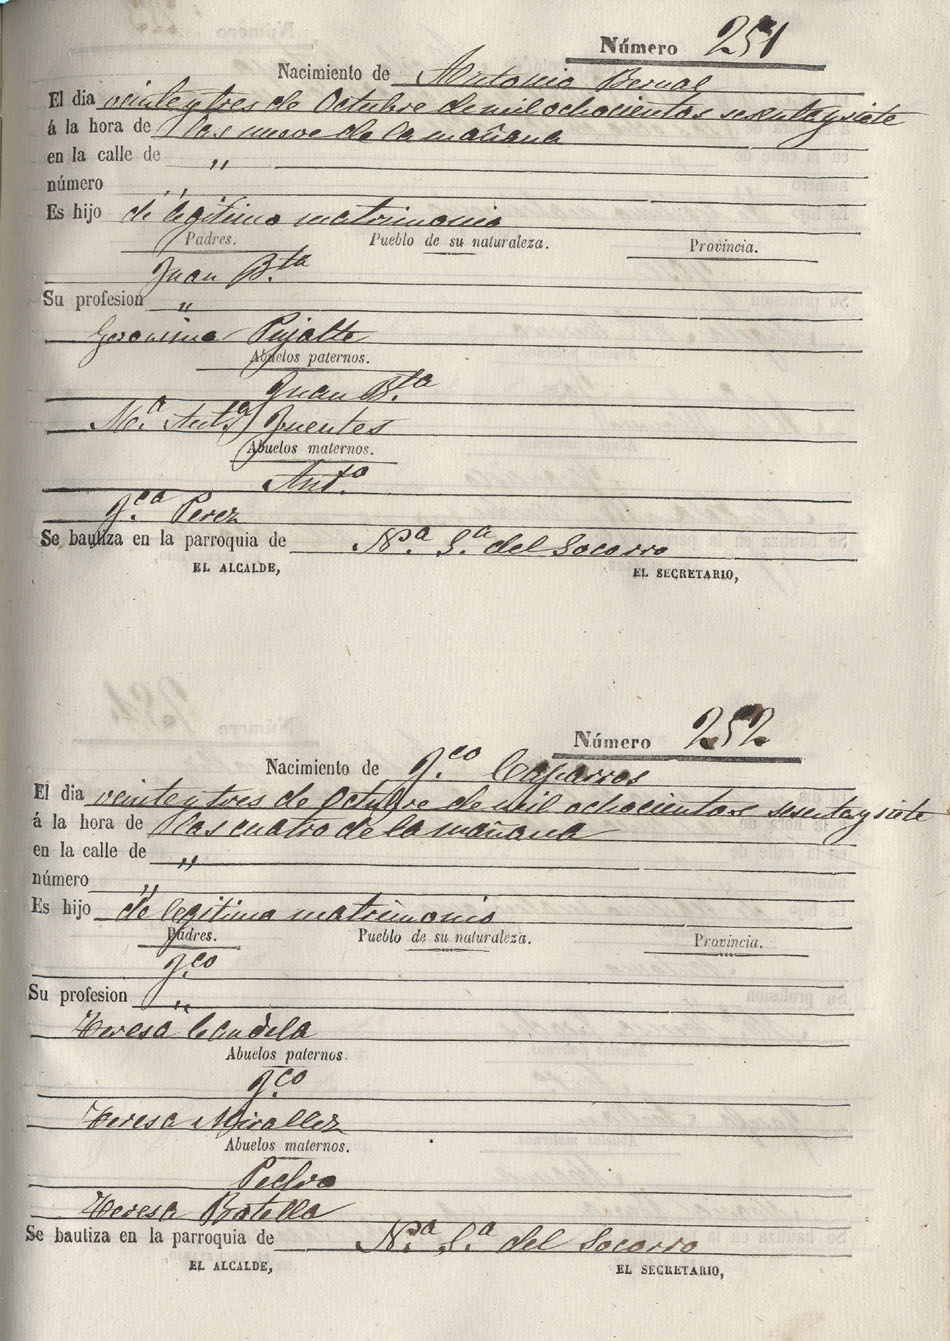 Número 251
Nacimiento de Antonio Bernal
El dia veinte y tres de Octubre de mil ochocientos sesenta y siete
á la hora de las nueve de la mañana
en la calle de "
número "
Es hijo de legitimo matrimonio
Padres. Pueblo de su naturaleza. Provincia.
Juan B.ta
Su profesion "
Geronima Pujalte
Abuelos paternos.
Juan B.ta
M.a Ant.a Fuentes
Abuelos maternos.
Ant.o
F.ca Perez
Se bautiza en la parroquia de N.a S.a del Socorro
EL ALCALDE, EL SECRETARIO,
Número 252
Nacimiento de F.co Caparros
El dia veinte y tres de Octubre de mil ochocientos sesenta y siete
á la hora de las cuatro de la mañana
en la calle de "
número "
Es hijo de legitimo matrimonio
Padres. Pueblo de su naturaleza. Provincia.
F.co
Su profesion "
Teresa Candela
Abuelos paternos.
F.co
Teresa Mirallez
Abuelos maternos.
Pedro
Teresa Botella
Se bautiza en la parroquia de N.a S.a del Socorro
EL ALCALDE, EL SECRETARIO,